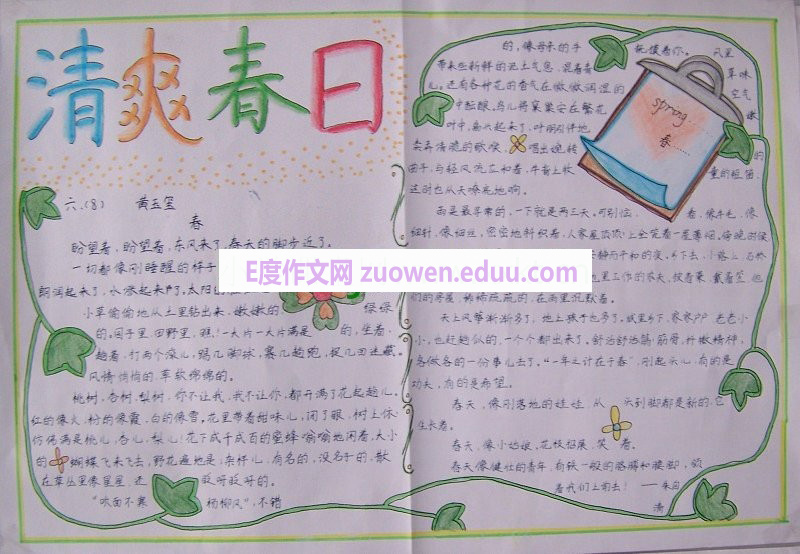 清爽春日
六.(8) 黄玉莹
春
盼望着,盼望着,东风来了,春天的脚步近了。
一切都像刚睡醒的样子
朗润起来了,水涨起来了,太阳的
小草偷偷地从土里钻出来,嫩嫩的 绿绿
的。园子里,田野里,瞧!一大片一大片满是 的,坐着,
趟着,打两个滚儿,踢几脚球,赛几趟跑,捉几回迷藏。
风悄悄的,草软绵绵的。
桃树、杏树、梨树,你不让我,我不让你,都开满了花赶趟儿。
红的像火,粉的像霞,白的像雪。花里带着甜味儿,闭了眼,树上
仿佛满是桃儿、杏儿、梨儿!花下成千成百的蜜蜂嗡嗡地闹着,大小
的 蝴蝶飞来飞去,野花遍地是:杂样儿,有名的,没名子的,散
在草丛里像星星,还 眨呀眨呀的。
“吹面不寒 杨柳风”,不错
的,像母亲的手 抚摸着你。 风里
带来些新鲜的泥土气息,混着青 草味
儿。还有各种花的香气在微微润湿的 空气
中酝酿。鸟儿将窠巢安在繁花 嫩
叶中,高兴起来了,呼朋引伴地
卖弄清脆的歌喉, 唱出宛转 的
曲子,与轻风流水和着,牛背上牧 童的短笛,
这时也从天嘹亮地响。
spring
春
雨是最寻常的,一下就是两三天。可别恼, 看,像牛毛,像
细针,像细丝,密密地斜织着,人家屋顶上全笼着一层薄烟。傍晚时候
静而平和的夜。乡下去,小路上,石桥
地里工作的农夫,披着蓑,戴着笠 他
们的房屋,稀稀疏疏的,在雨里沉默着。
天上风筝渐渐多了,地上孩子也多了。城里乡下,家家户户,老老小
小,也赶趟似的,一个个都出来了。舒活舒活筋骨,抖擞精神,
各做各的一份事儿去了。“一年之计在于春”,刚起头儿,有的是
功夫,有的是希望。
春天,像刚落地的娃娃,从 头到脚都是新的,它
生长着。
春天,像小姑娘,花枝招展,笑 着。
春天像健壮的青年,有铁一般的胳膊和腰脚,领
着我们上前去! ——朱自
清
E度作文网 zuowen.eduu.com